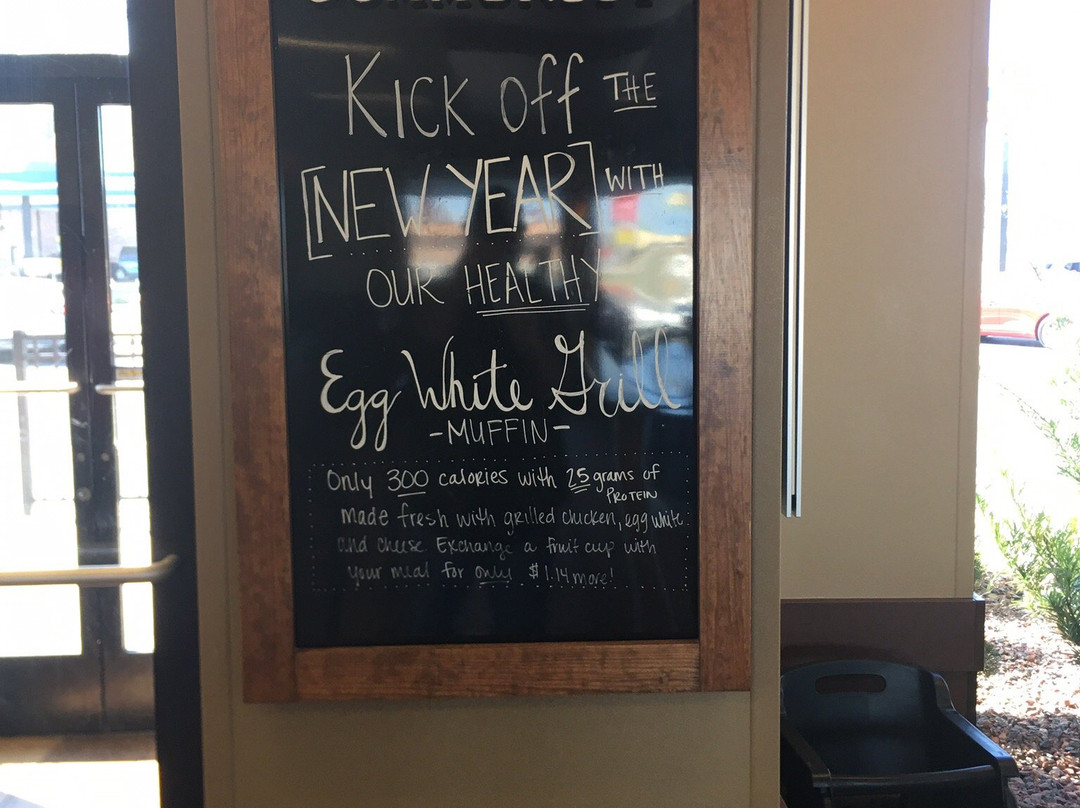 Kick off THE
[NEW YEAR] WITH
OUR HEALTHY
Egg White Grill
-MUFFIN-
Only 300 calories with 25 grams of
PROTEIN
made fresh with grilled chicken, egg white
and cheese. Exchange a fruit cup with
your meal for only $1.14 more!